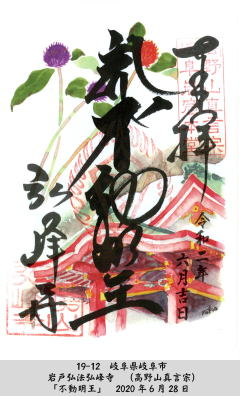 奉拝
不動明王
弘峰寺
令和二年
六月吉日
19-12　岐阜県岐阜市
岩戸弘法弘峰寺　（高野山真言宗）
「不動明王」　2020年6月28日